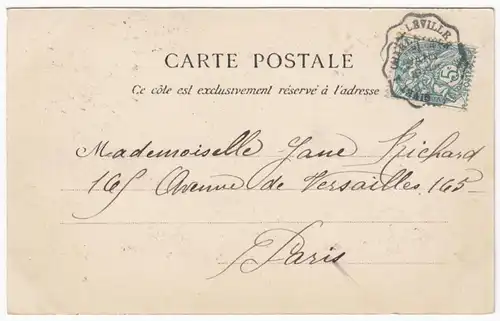 CARTE POSTALE
Ce côté est exclusivement réservé à l'adresse
Mademoiselle Jane Richard
165 Avenue de Versailles. 165
Paris
5